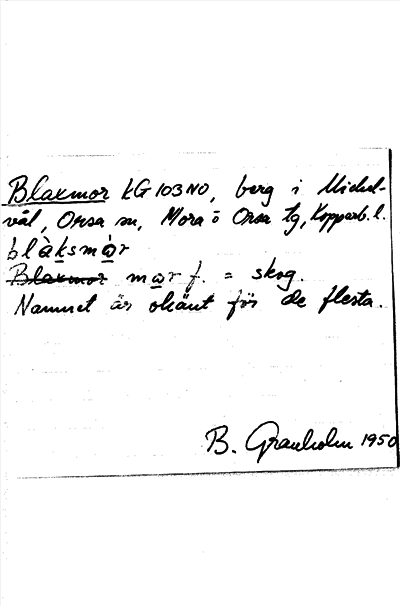 Blaxmor kG 103 NO, berg i Mickel-
vål, Orsa sn, Mora ö Orsa tg, Kopparb. l.
blàksmὼr
Blaxmor mωr f. = skog.
Namnet är okänt för de flesta.
B. Granholm 1950